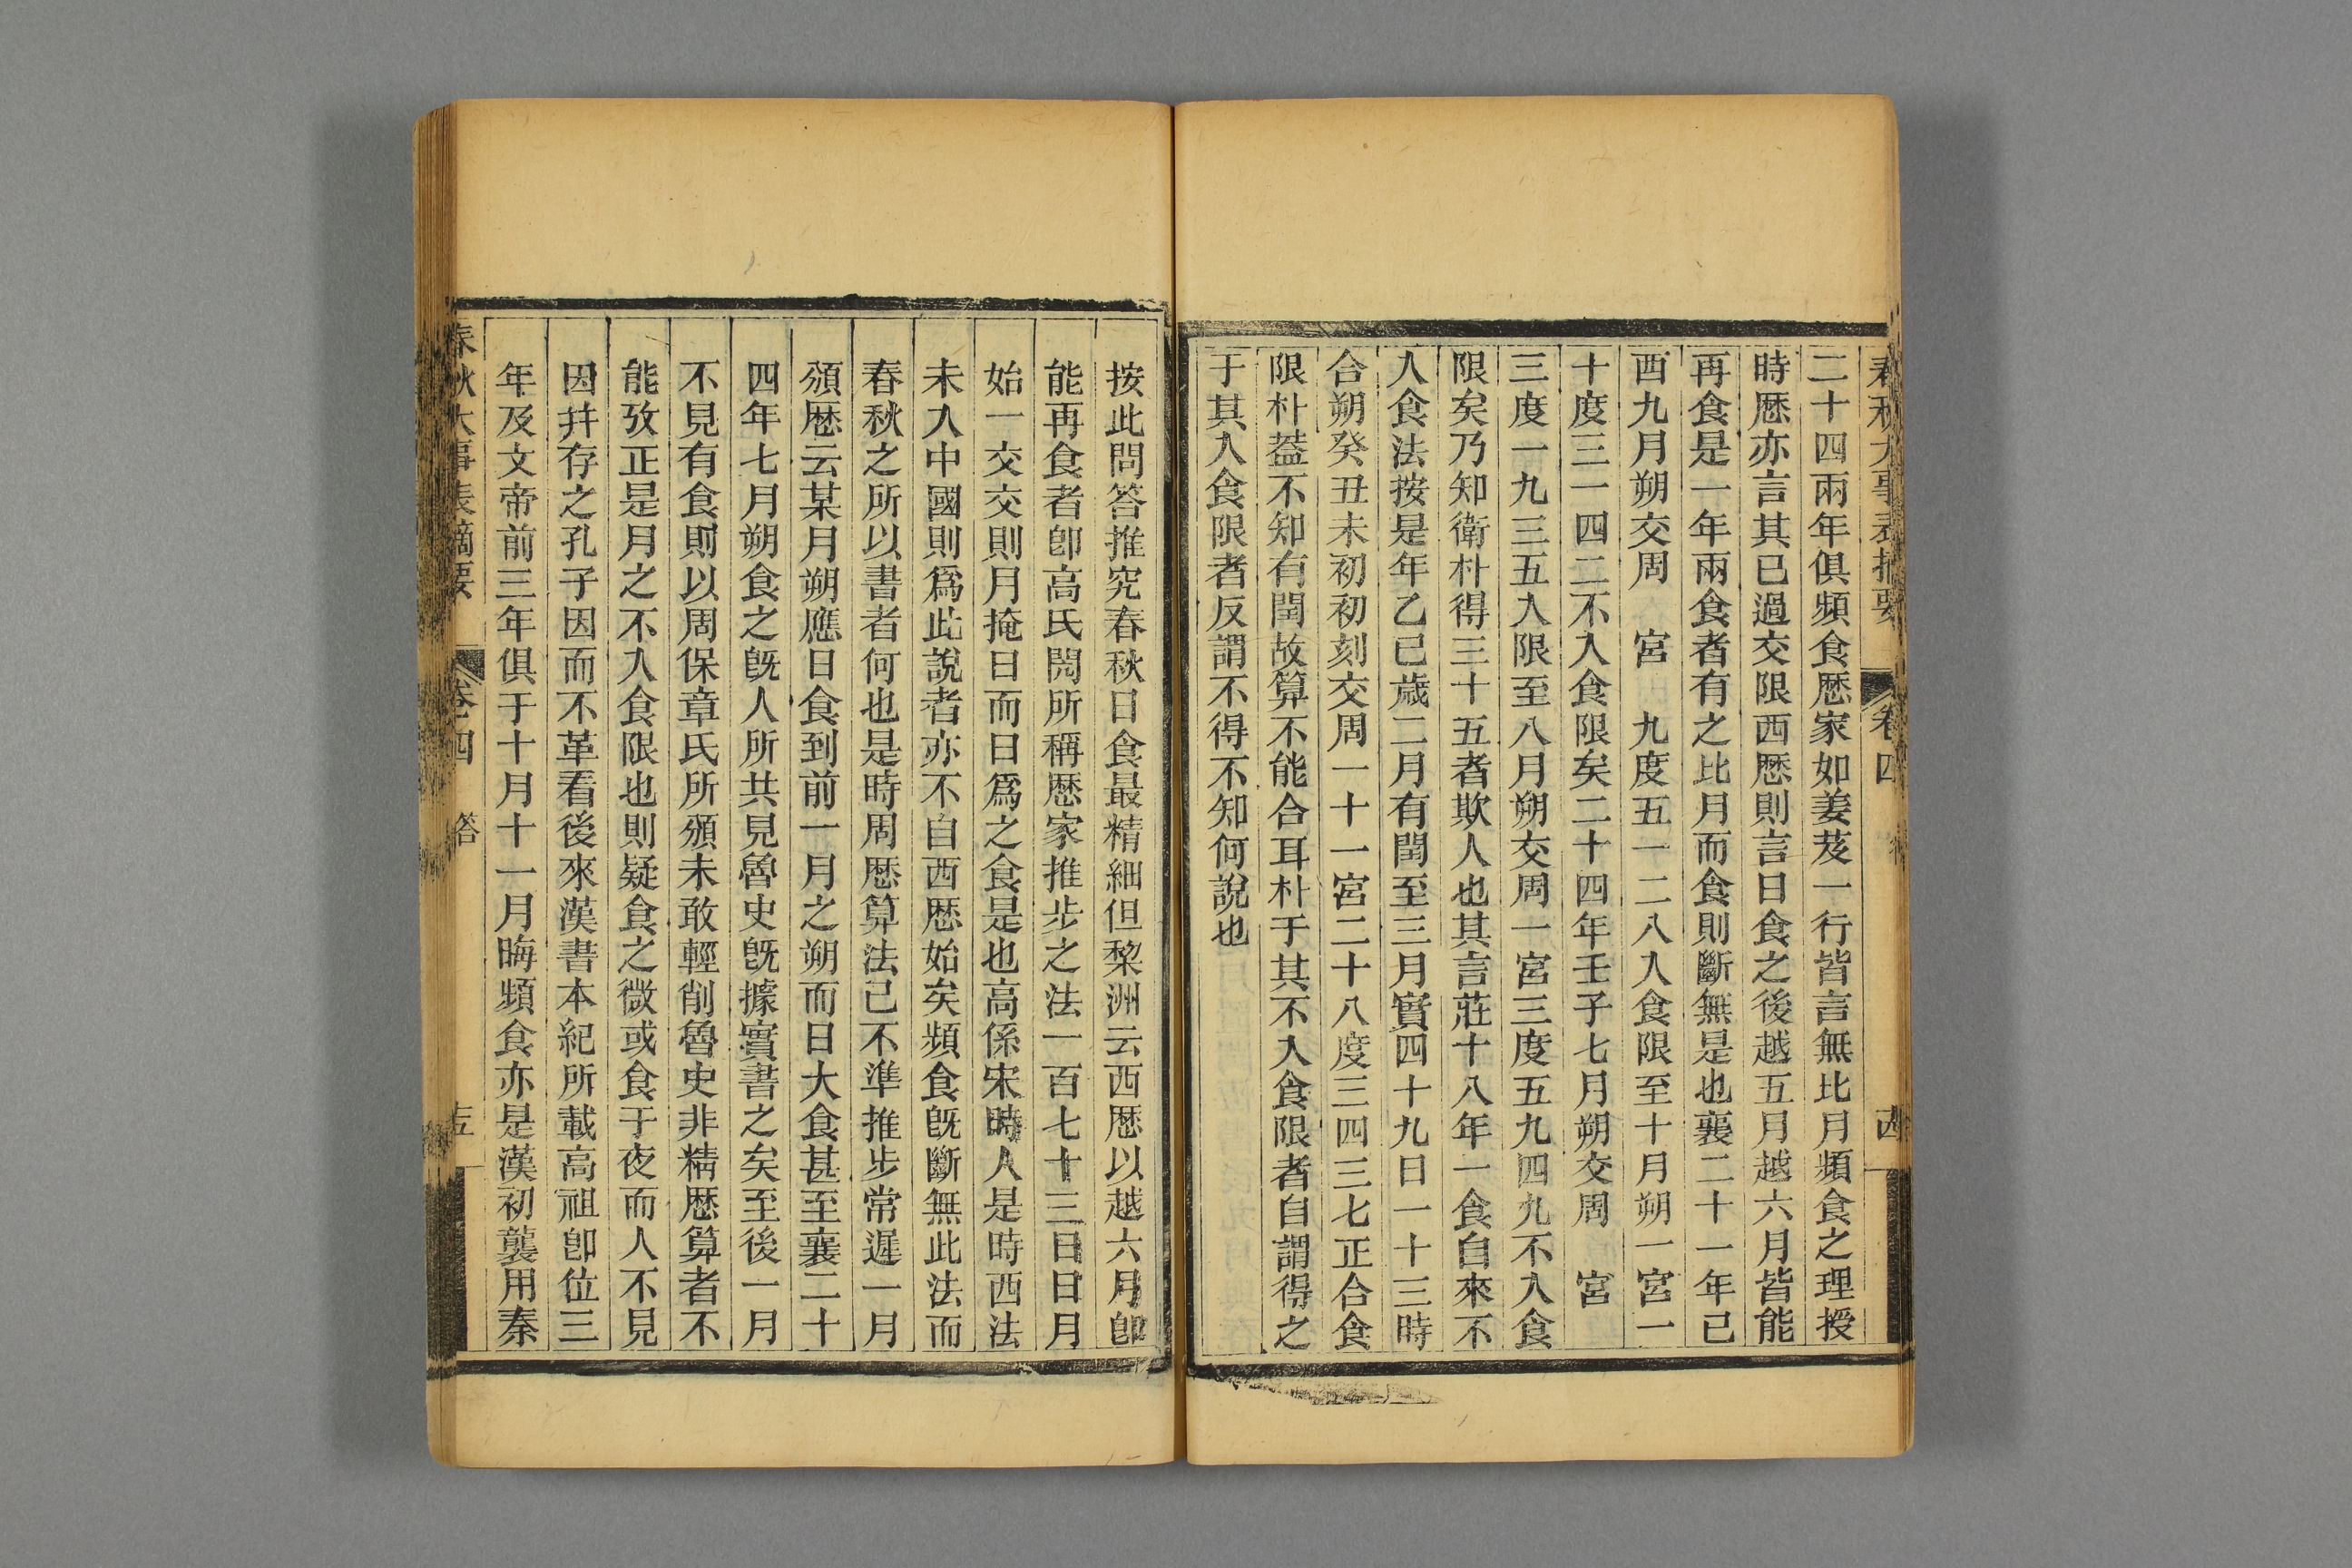 春秋大事表摘要 卷四 十四
二十四兩年俱頻食厯家如姜岌一行皆言無比月頻食之理授
時厯亦言其已過交限西厯則言日食之後越五月越六月皆能
再食是一年兩食者有之比月而食則斷無是也襄二十一年己
酉九月朔交周 宮 九度五一二八入食限至十月朔一宮一
十度三一四二不入食限矣二十四年壬子七月朔交周 宮
三度一九三五入限至八月朔交周一宮三度五九四九不入食
限矣乃知衛朴得三十五者欺人也其言莊十八年一食自來不
入食法按是年乙巳歲二月有閏至三月實四十九日一十三時
合朔癸丑未初初刻交周一十一宮二十八度三四三七正合食
限朴葢不知有閏故算不能合耳朴于其不入食限者自謂得之
于其入食限者反謂不得不知何說也
按此問答推究春秋日食最精細但棃洲云西厯以越六月卽
能再食者卽高氏閌所稱厯家推步之法一百七十三日日月
始一交交則月掩日而日爲之食是也高係宋時人是時西法
未入中國則爲此說者亦不自西厯始矣頻食旣斷無此法而
春秋之所以書者何也是時周厯算法已不準推步常遲一月
頒厯云某月朔應日食到前一月之朔而日大食甚至襄二十
四年七月朔食之旣人所共見魯史旣據實書之矣至後一月
不見有食則以周保章氏所頒未敢輕削魯史非精厯算者不
能攷正是月之不入食限也則疑食之微或食于夜而人不見
因并存之孔子因而不革看後來漢書本紀所載高祖卽位三
年及文帝前三年俱于十月十一月晦頻食亦是漢初襲用秦
春秋大事表摘要 卷四 十五